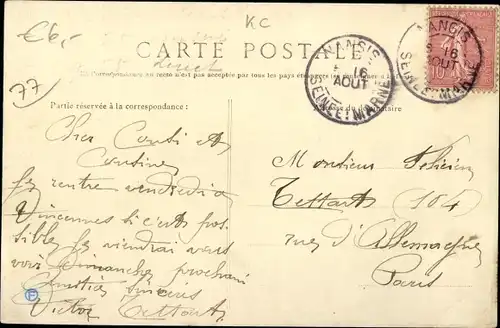 €6,-
KC
77
CARTE POSTALE
La Correspondance au recto n'est pas acceptée par tous les pays étrangers
Partie réservée à la correspondance:
NANGIS
16
AOUT
SEINE ET MARNE
NANGIS
16
AOUT
SEINE ET MARNE
10
Cher Cousi et
Cousine
Je rentre vendredi a
Vincennes si c'est pos
sible Je viendrai vous
voir Dimanche prochain
Amitiés sincères
Victor Tettart
Monsieur Felicien
Tettart 104
rue d'Allemagne
Paris